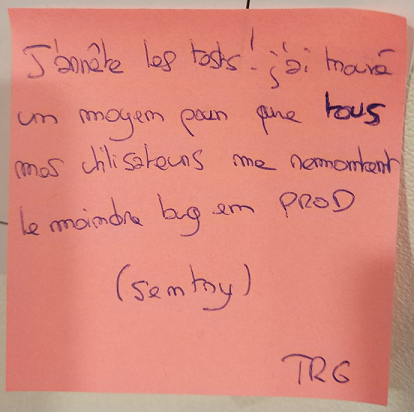 J'arrête les tests ! j'ai trouvé
un moyen pour que tous
mes utilisateurs me remontent
le moindre bug en PROD
(Sentry)
TRG